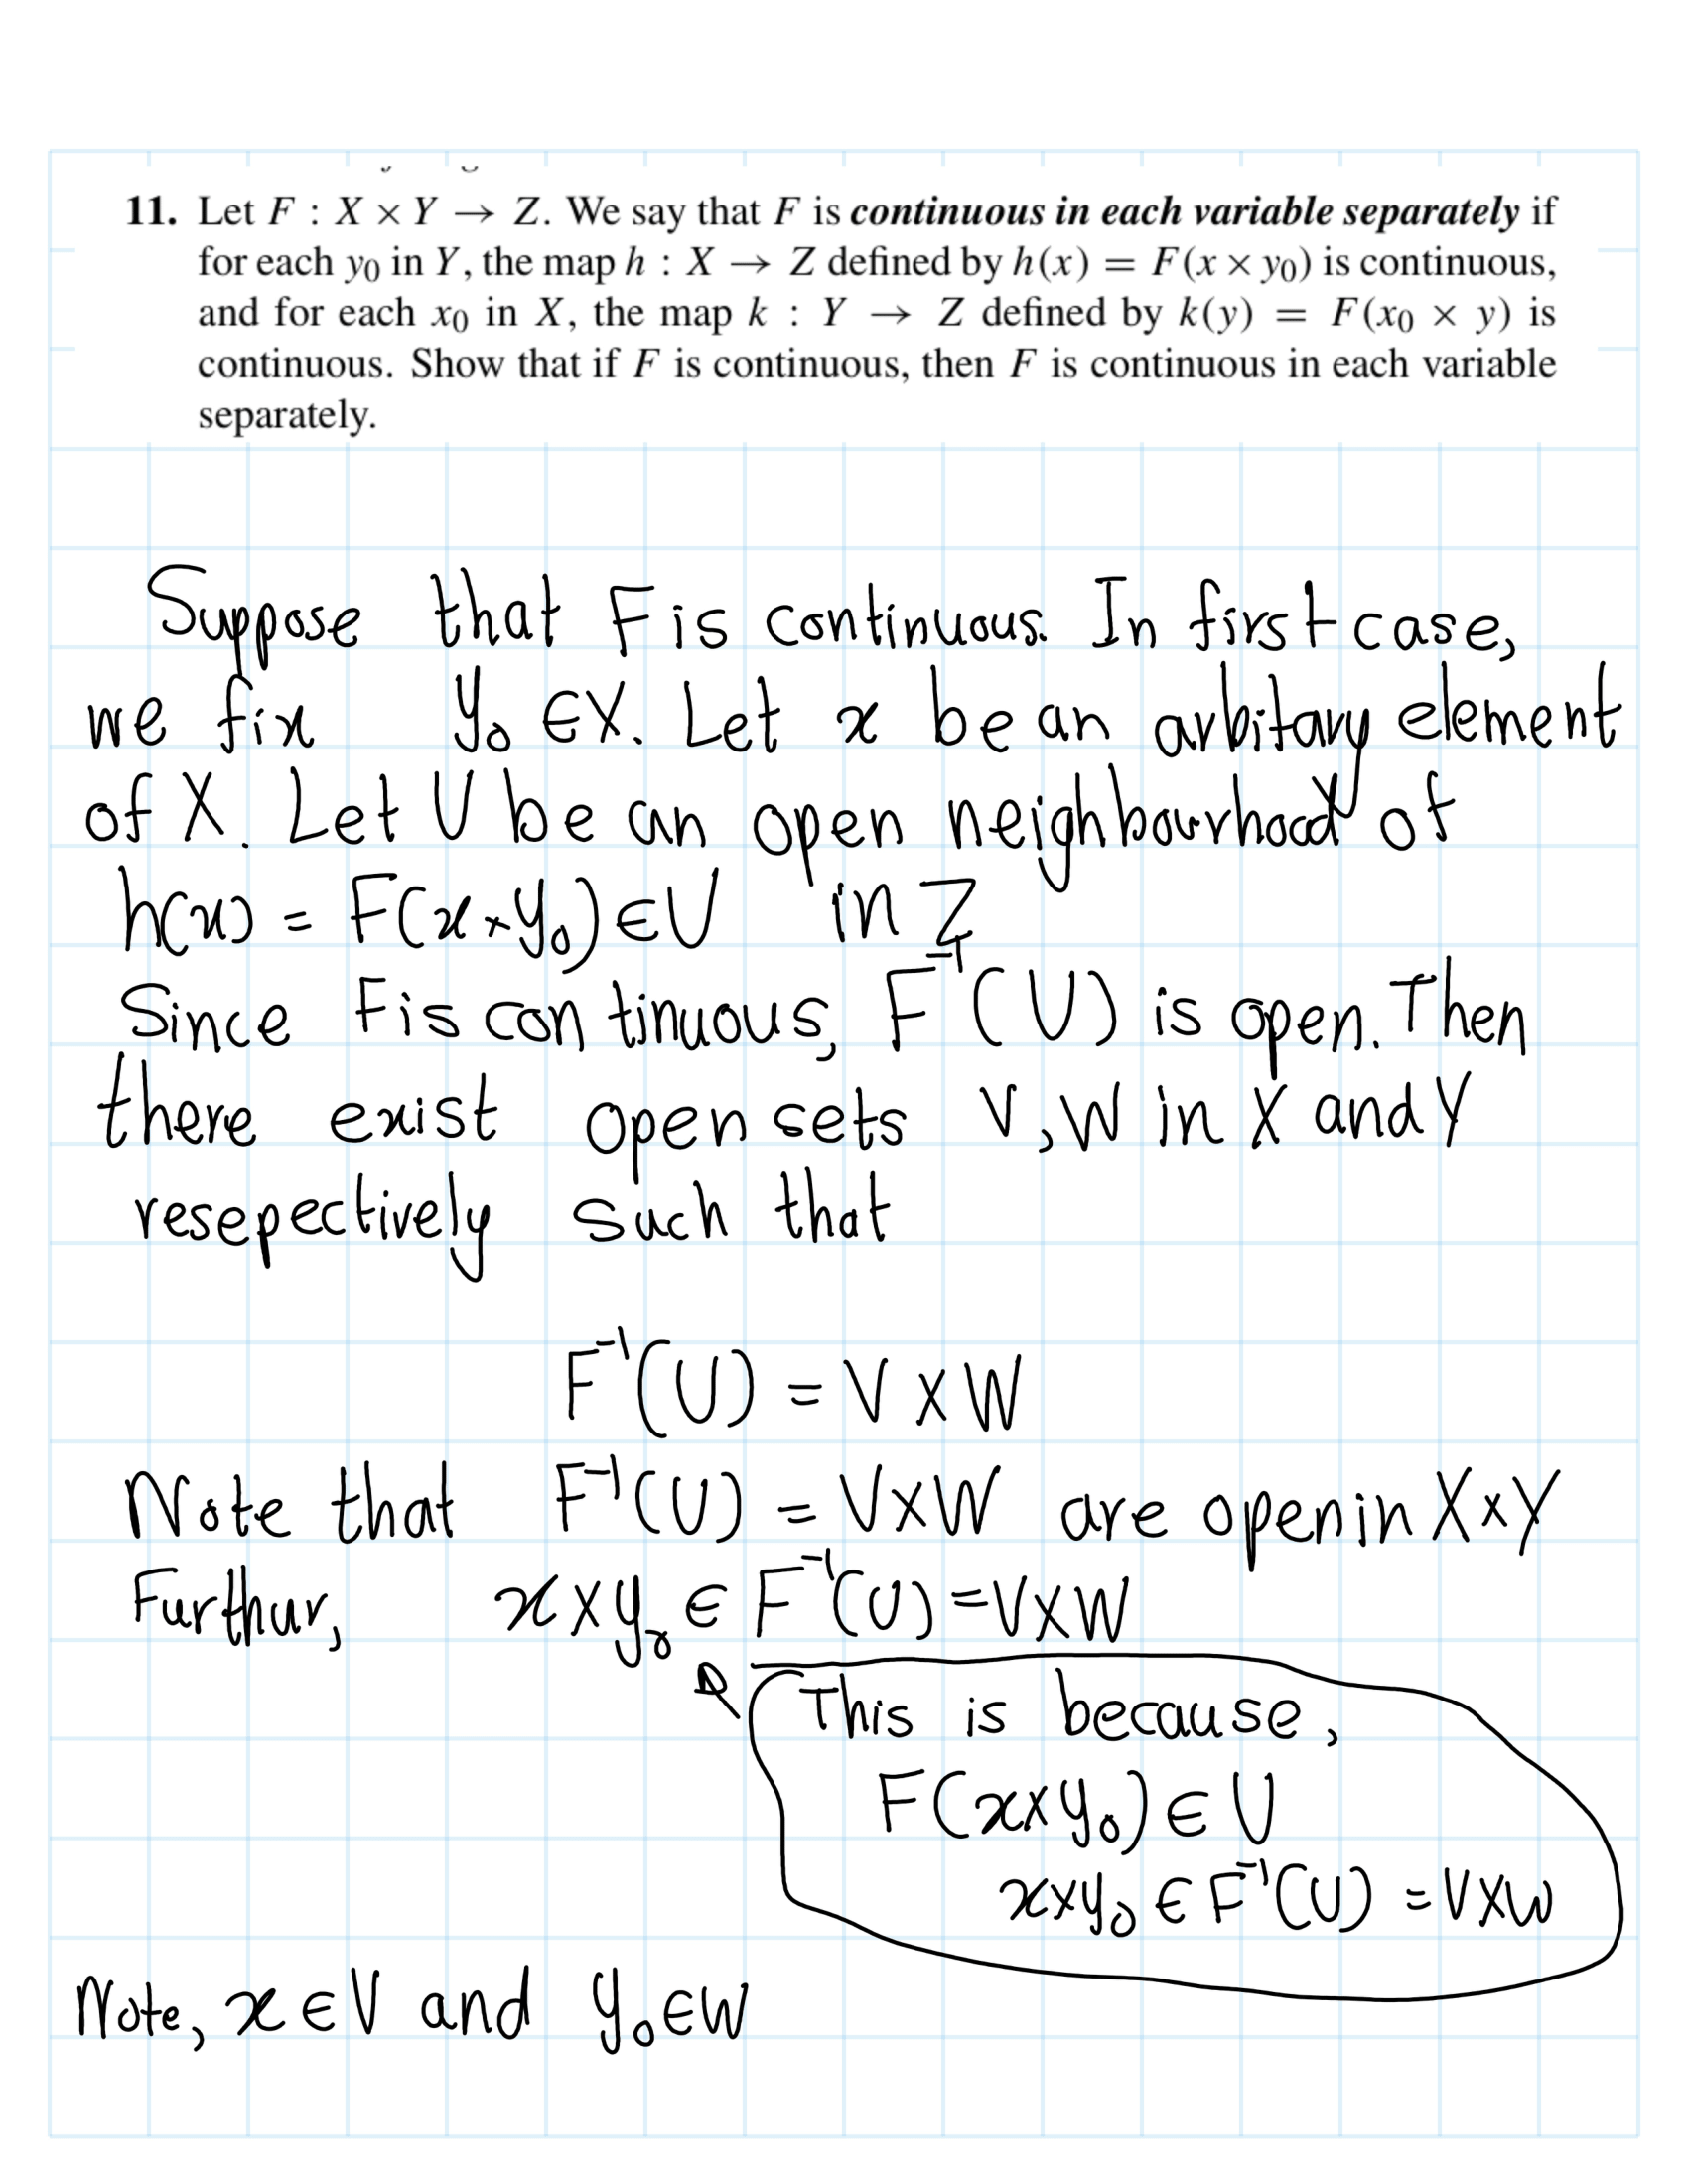 11. Let F : X × Y → Z. We say that F is continuous in each variable separately if
for each y₀ in Y, the map h : X → Z defined by h(x) = F(x × y₀) is continuous,
and for each x₀ in X, the map k : Y → Z defined by k(y) = F(x₀ × y) is
continuous. Show that if F is continuous, then F is continuous in each variable
separately.
Suppose that F is continuous. In first case,
we fix y₀ ∈ X. Let x be an arbitary element
of X. Let U be an open neighbourhood of
h(x) = F(x × y₀) ∈ U in Z
Since F is continuous, F⁻¹(U) is open. Then
there exist open sets V, W in X and Y
resepectively such that
F⁻¹(U) = V × W
Note that F⁻¹(U) = V × W are open in X × Y
Furthur, x × y₀ ∈ F⁻¹(U) = V × W
This is because,
F(x × y₀) ∈ U
x × y₀ ∈ F⁻¹(U) = V × W
Note, x ∈ V and y₀ ∈ W